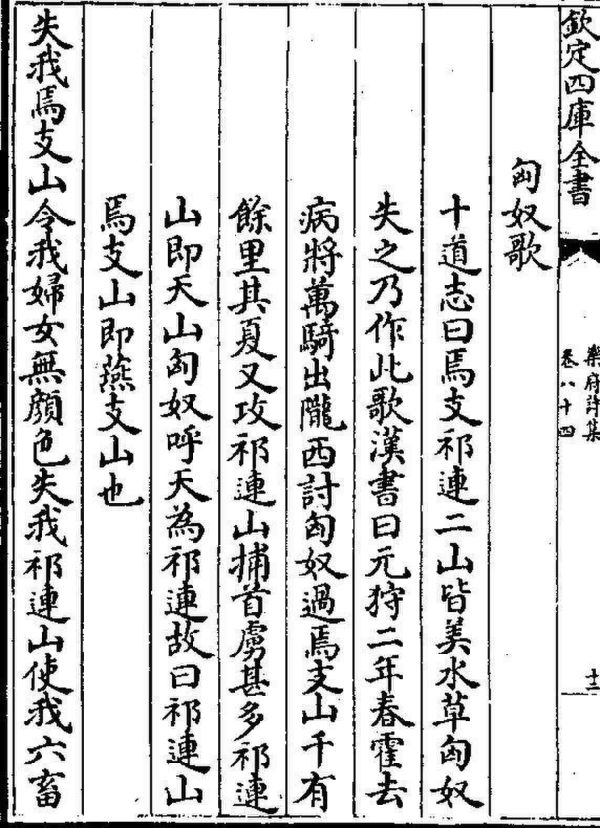 欽定四庫全書
樂府詩集
卷八十四
十二
匈奴歌
十道志曰焉支祁連二山皆美水草匈奴
失之乃作此歌漢書曰元狩二年春霍去
病將萬騎出隴西討匈奴過焉支山千有
餘里其夏又攻祁連山捕首虜甚多祁連
山即天山匈奴呼天為祁連故曰祁連山
焉支山即燕支山也
失我焉支山令我婦女無顔色失我祁連山使我六畜